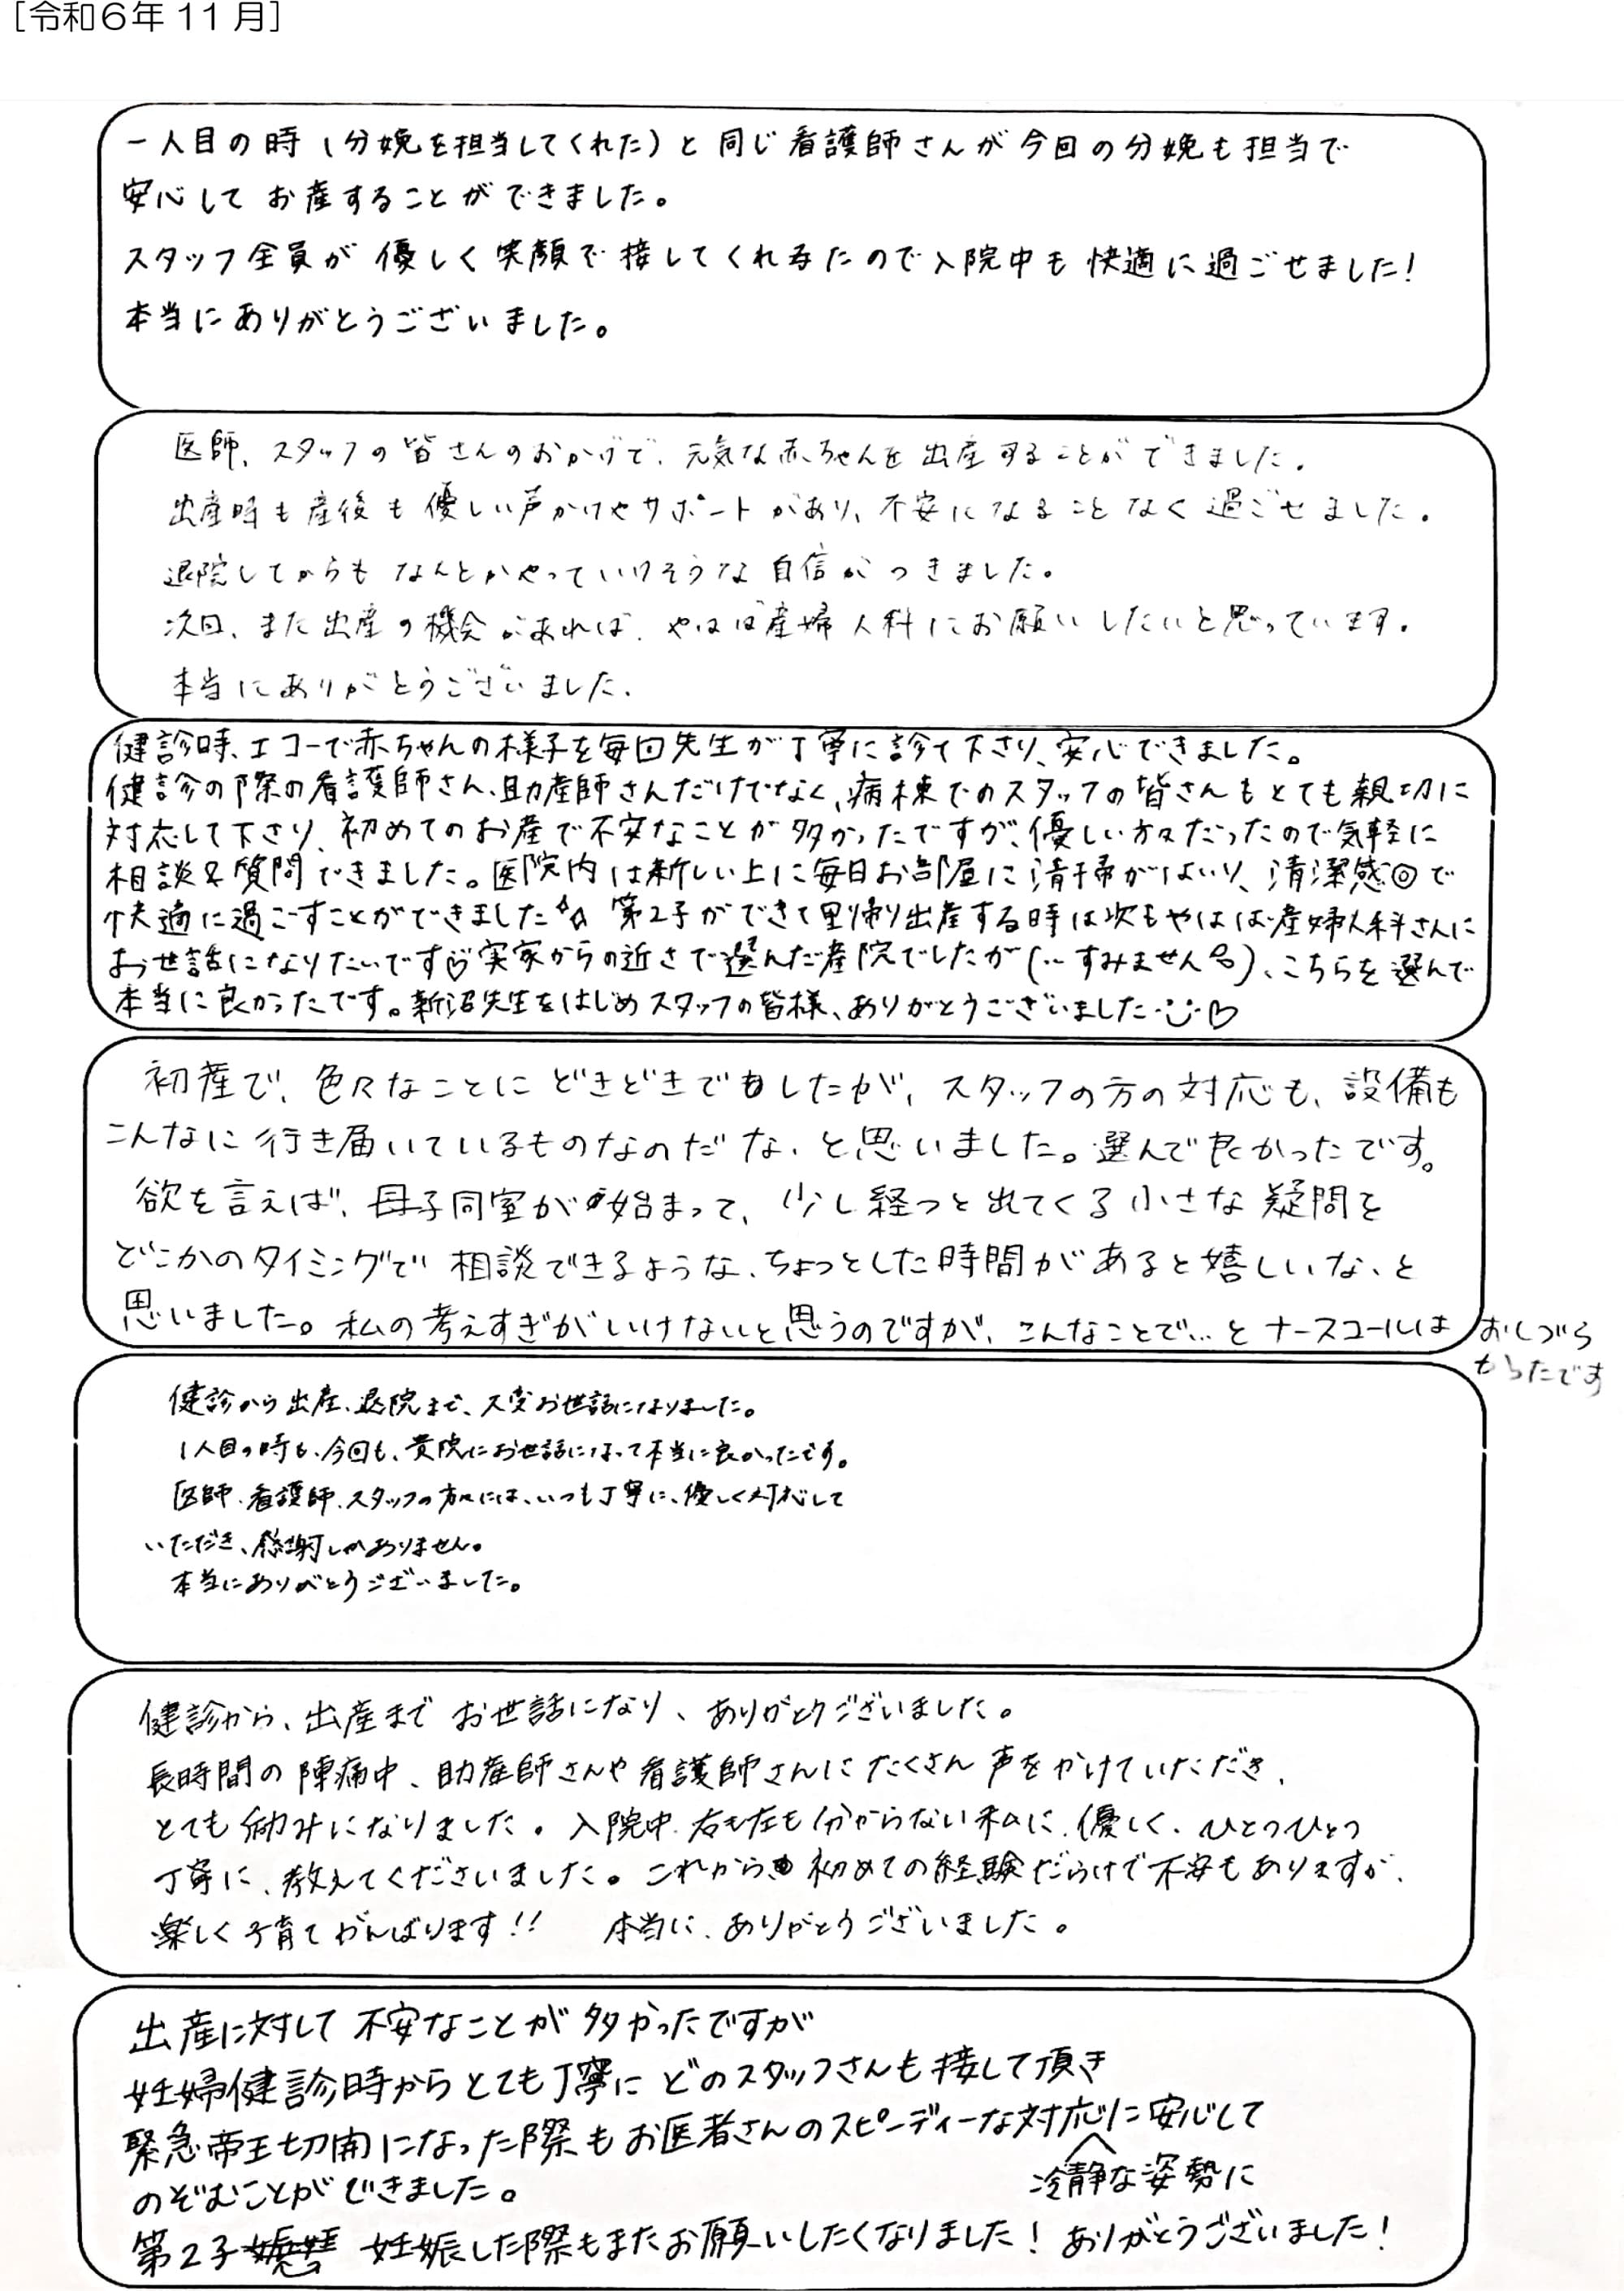 [令和6年 11月]
一人目の時(分娩を担当してくれた)と同じ看護師さんが今回の分娩も担当で
安心して お産することができました。
スタッフ全員が 優しく笑顔で接してくれたので入院中も快適に過ごせました!
本当にありがとうございました。
医師、スタッフの皆さんのおかげで、元気な赤ちゃんを出産することができました。
出産時も産後も優しい声かけやサポートがあり、不安になることなく過ごせました。
退院してからもなんとかやっていけそうな自信がつきました。
次回、また出産の機会があれば、やはは産婦人科にお願いしたいと思っています。
本当にありがとうございました。
健診時、エコーで赤ちゃんの様子を毎回先生が丁寧に診て下さり、安心できました。
健診の際の看護師さん、助産師さんだけでなく、病棟でのスタッフの皆さんもとても親切に
対応して下さり、初めてのお産で不安なことが多かったですが、優しい方々だったので気軽に
相談&質問できました。医院内は新しい上に毎日お部屋に清掃がはいり、清潔感◎で
快適に過ごすことができました☆☆ 第2子ができて里帰り出産する時は次もやはは産婦人科さんに
お世話になりたいです♡実家からの近さで選んだ産院でしたが(..すみません)、こちらを選んで
本当に良かったです。新沼先生をはじめスタッフの皆様、ありがとうございました♡
初産で、色々なことにどきどきでしたが、スタッフの方の対応も、設備も
こんなに行き届いているものなのだな、と思いました。選んで良かったです。
欲を言えば、母子同室が始まって、少し経つと出てくる小さな疑問を
どこかのタイミングで相談できるような、ちょっとした時間があると嬉しいな、と
思いました。私の考えすぎがいけないと思うのですが、こんなことで…とナースコールは おしづら
かったです
健診から出産、退院まで、大変お世話になりました。
1人目の時も、今回も、貴院にお世話になって本当に良かったです。
医師、看護師、スタッフの方々には、いつも丁寧に、優しく対応して
いただき、感謝しかありません。
本当にありがとうございました。
健診から、出産まで お世話になり、ありがとうございました。
長時間の陣痛中、助産師さんや看護師さんにたくさん声をかけていただき、
とても励みになりました。入院中、右も左も分からない私に、優しく、ひとつひとつ
丁寧に、教えてくださいました。これから初めての経験だらけで不安もありますが、
楽しく子育てがんばります!! 本当に、ありがとうございました。
出産に対して 不安なことが多かったですが
妊婦健診時からとても丁寧に どのスタッフさんも接して頂き
緊急帝王切開になった際もお医者さんのスピーディーな対応に安心して
冷静な姿勢に
のぞむことができました。
第2子 妊娠した際もまたお願いしたくなりました! ありがとうございました!